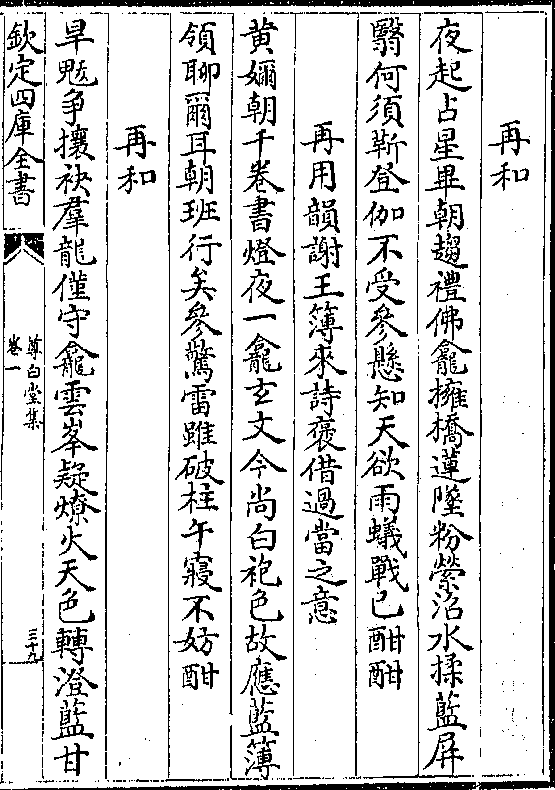 再和
夜起占星畢朝趨禮佛龕擁橋蓮墜粉縈沼水揉藍屏
翳何須靳登伽不受參懸知天欲雨蟻戰已酣酣
再用韻謝王簿來詩褒借過當之意
黄嬭朝千卷書燈夜一龕𤣥文今尚白袍色故應藍簿
領聊爾耳朝班行矣參驚雷雖破柱午寢不妨酣
再和
旱魃爭攘袂羣龍僅守龕雲峯疑燎火天色轉澄藍甘
欽定四庫全書
尊白堂集
卷一
三十九